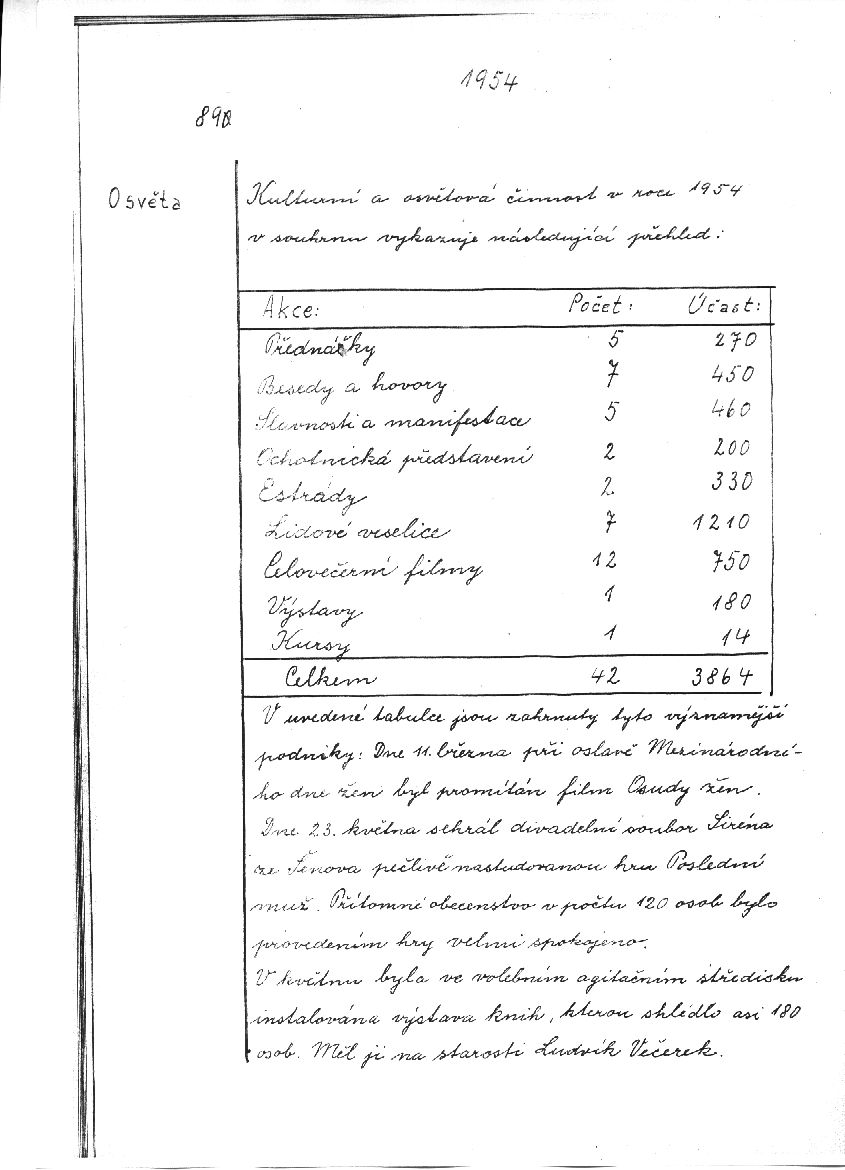 1954
890
Osvěta
Kulturní a osvětová činnost v roce 1954
v souhrnu vykazuje následující přehled:
Akce: Počet: Účast:
Přednášky 5 270
Besedy a hovory 7 450
Slavnosti a manifestace 5 460
Ochotnická představení 2 200
Estrády 2 330
Lidové veselice 7 1210
Celovečerní filmy 12 750
Výstavy 1 180
Kursy 1 14
Celkem 42 3864
V uvedené tabulce jsou zahrnuty tyto významější
podniky: Dne 11. března při oslavě Mezinárodní-
ho dne žen byl promítán film Osudy žen.
Dne 23. května sehrál divadelní soubor Siréna
ze Šenova pečlivě nastudovanou hru Poslední
muž. Přítomné obecenstvo v počtu 120 osob bylo
provedením hry velmi spokojeno.
V květnu byla ve volebním agitačním středisku
instalována výstava knih, kterou shlédlo asi 180
osob. Měl ji na starosti Ludvík Večerek.